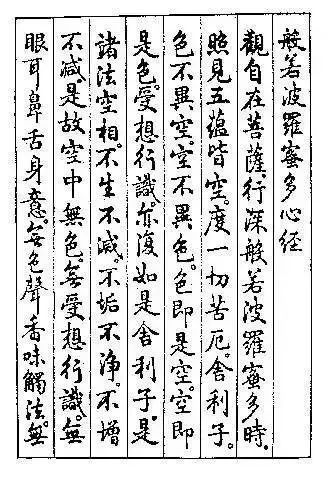 般若波羅蜜多心経
觀自在菩薩。行深般若波羅蜜多時。
照見五蘊皆空。度一切苦厄。舍利子。
色不異空。空不異色。色即是空。空即
是色。受想行識。亦復如是舍利子。是
諸法空相。不生不滅。不垢不淨。不增
不减。是故空中無色。無受想行識。無
眼耳鼻舌身意。無色聲香味觸法。無